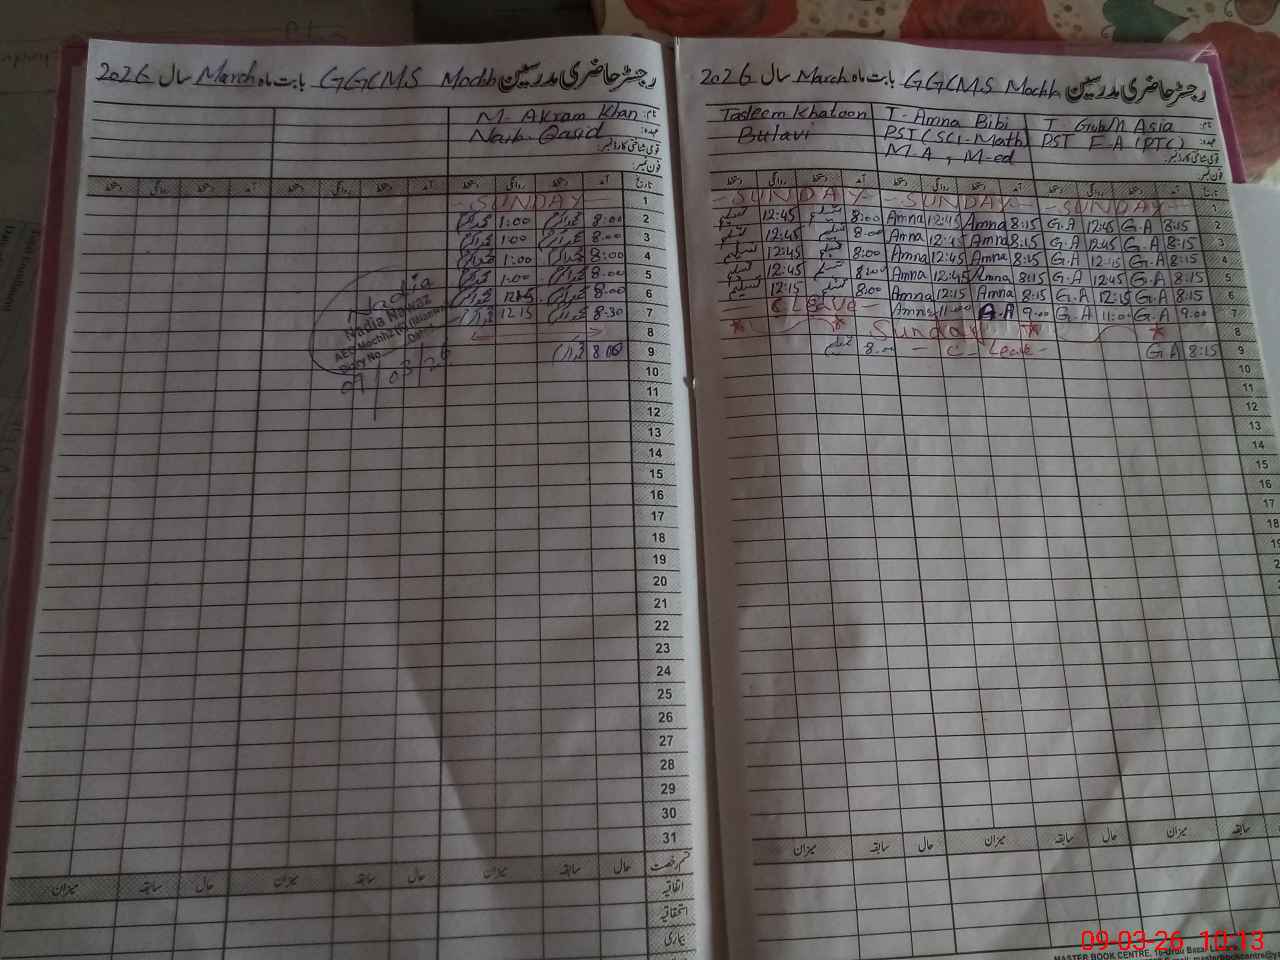 رجسٹر حاضری مدرسین GGCMS Mochh بابت ماہ March سال 2026
نام: M. Akram Khan
عہدہ: Naib Qasid
قومی شناختی کارڈ نمبر:
فون نمبر:
تاریخ آمد دستخط روانگی دستخط آمد دستخط روانگی دستخط آمد دستخط روانگی دستخط
1 - SUNDAY -
2 8:00 1:00
3 8:00 1:00
4 8:00 1:00
5 8:00 1:00
6 8:00 12:15
7 8:30 12:15
8
9 8:00
10
11
12
13
14
15
16
17
18
19
20
21
22
23
24
25
26
27
28
29
30
31
Nadia
Nadia Nawaz
Diary No. Date
09/03/26
قسم رخصت حال سابقہ میزان حال سابقہ میزان حال سابقہ میزان
اتفاقیہ
استحقاقیہ
بیماری
رجسٹر حاضری مدرسین GGCMS Mochh بابت ماہ March سال 2026
نام: T. Asia T. Amna Bibi Tasleem Khatoon
عہدہ: PST F.A (PTC) PST (Sci-Math) Butavi
قومی شناختی کارڈ نمبر: M.A, M-ed
فون نمبر:
تاریخ آمد دستخط روانگی دستخط آمد دستخط روانگی دستخط آمد دستخط روانگی دستخط
1 - SUNDAY - - SUNDAY - - SUNDAY -
2 8:15 G.A 12:45 G.A 8:15 Amna 12:45 Amna 8:00 تسلیم 12:45 تسلیم
3 8:15 G.A 12:45 G.A 8:15 Amna 12:45 Amna 8:00 تسلیم 12:45 تسلیم
4 8:15 G.A 12:15 G.A 8:15 Amna 12:45 Amna 8:00 تسلیم 12:45 تسلیم
5 8:15 G.A 12:45 G.A 8:15 Amna 12:45 Amna 8:00 تسلیم 12:45 تسلیم
6 8:15 G.A 12:15 G.A 8:15 Amna 12:15 Amna 8:00 تسلیم 12:15 تسلیم
7 9:00 G.A 11:00 G.A 9:00 G.A 11:00 Amna C Leave -
8 Sunday
9 8:15 G A - C - Leave - 8:00 تسلیم
10
11
12
13
14
15
16
17
18
میزان سابقہ حال میزان سابقہ حال میزان سابقہ
MASTER BOOK CENTRE, 16-Urdu Bazar
09-03-26 10:13